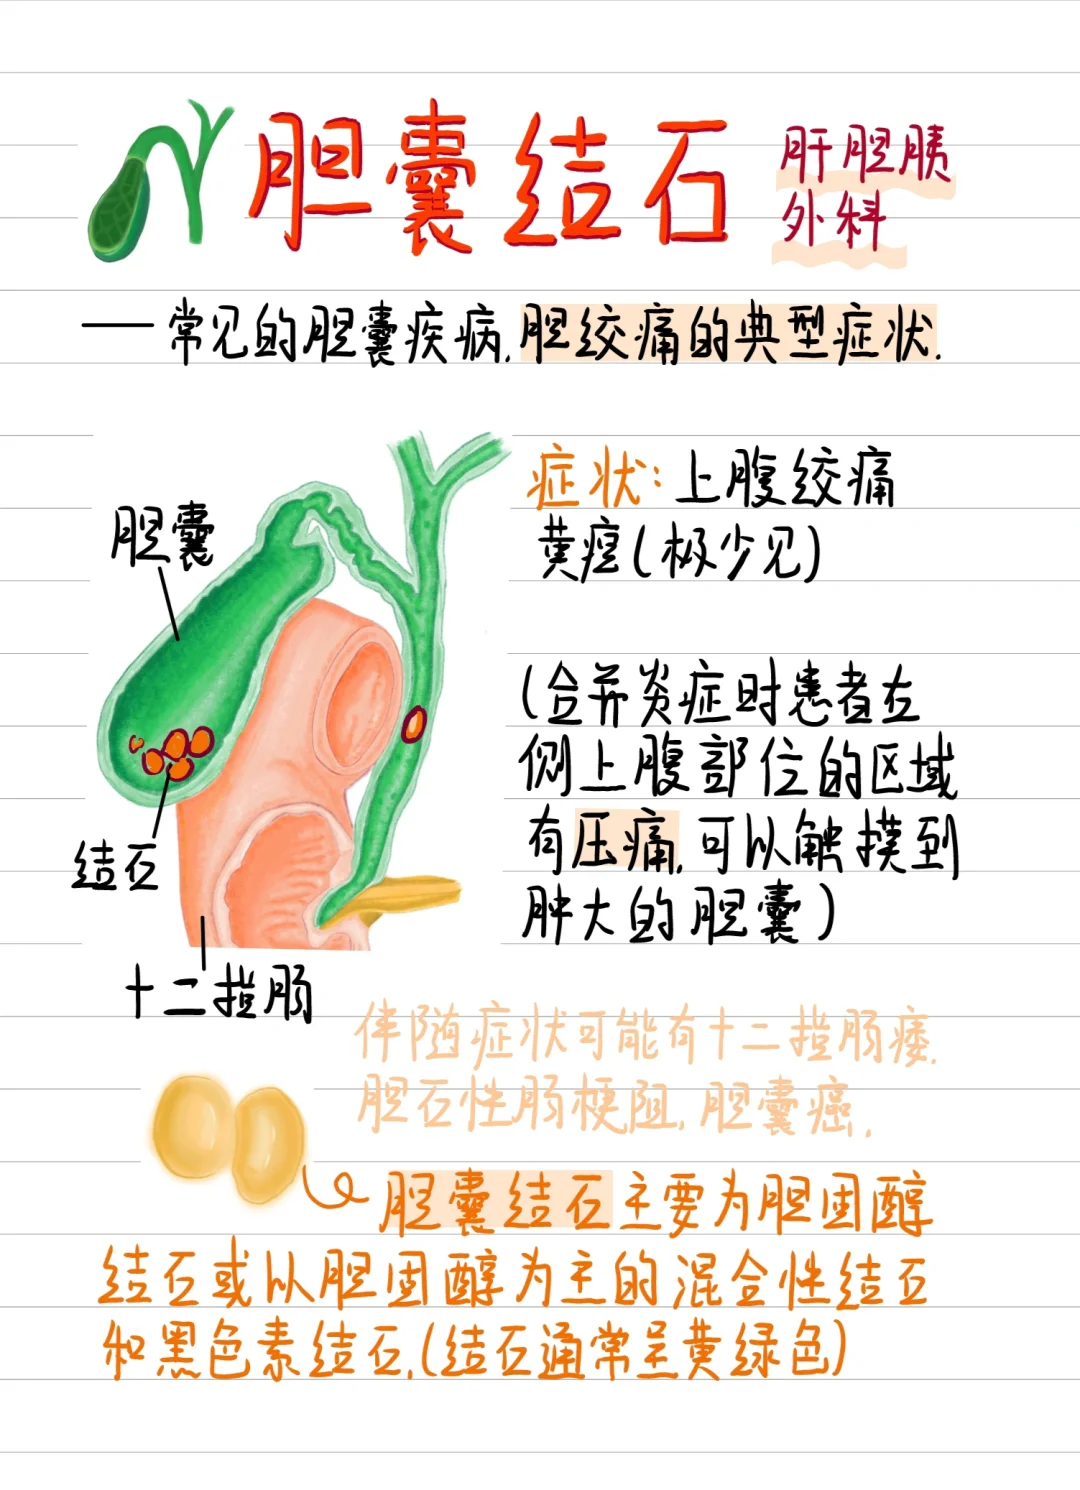 胆囊结石
肝胆胰
外科
——常见的胆囊疾病,胆绞痛的典型症状.
症状:上腹绞痛
黄疸(极少见)
胆囊
(合并炎症时患者左
侧上腹部位的区域
有压痛,可以触摸到
肿大的胆囊)
结石
十二指肠
伴随症状可能有十二指肠瘘.
胆石性肠梗阻,胆囊癌.
胆囊结石主要为胆固醇
结石或以胆固醇为主的混合性结石
和黑色素结石.(结石通常呈黄绿色)